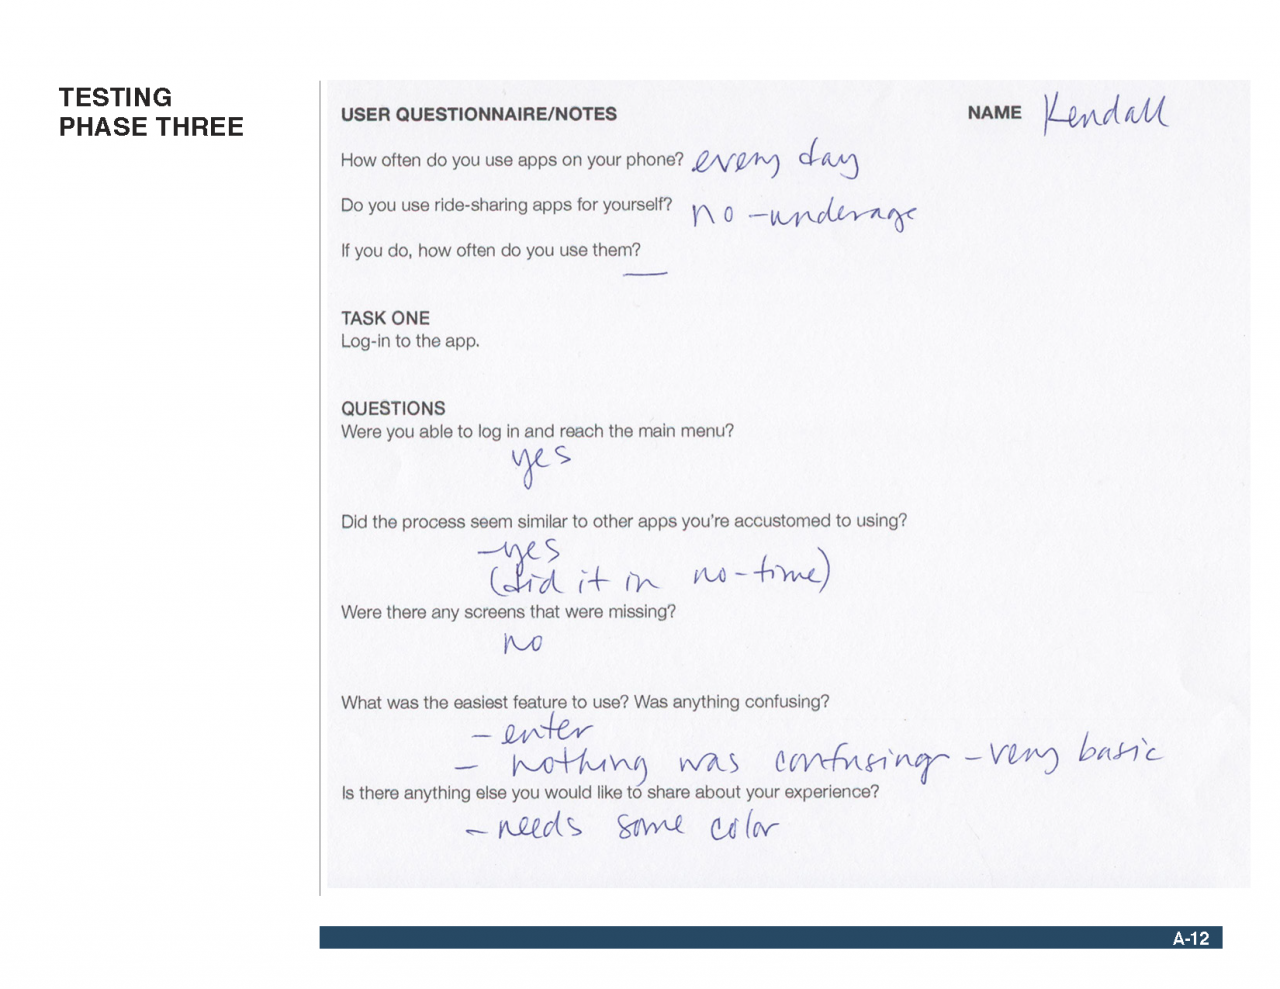 TESTING
PHASE THREE
USER QUESTIONNAIRE/NOTES NAME Kendall
How often do you use apps on your phone? every day
Do you use ride-sharing apps for yourself? no - underage
If you do, how often do you use them? —
TASK ONE
Log-in to the app.
QUESTIONS
Were you able to log in and reach the main menu?
yes
Did the process seem similar to other apps you're accustomed to using?
- yes
(did it in no-time)
Were there any screens that were missing?
no
What was the easiest feature to use? Was anything confusing?
- enter
- nothing was confusing - very basic
Is there anything else you would like to share about your experience?
- needs some color
A-12